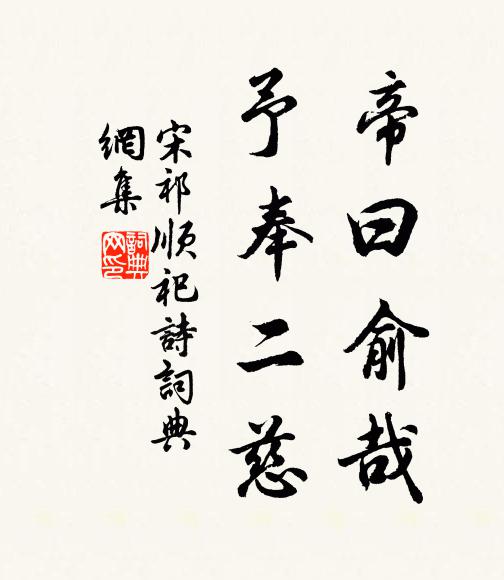 帝曰俞哉
予奉二慈
宋祁順祀詩詞典
網集
詞典
网印